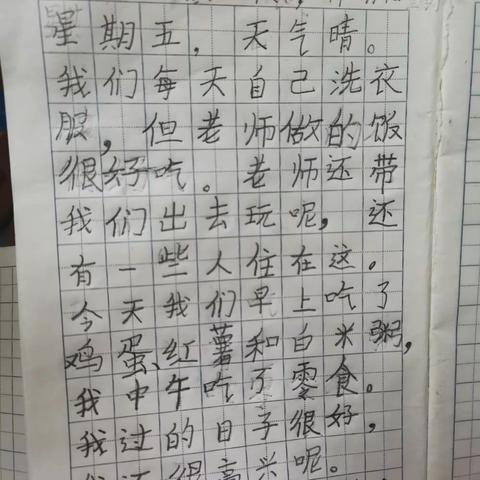 星期五，天气晴。
我们每天自己洗衣
服，但老师做的饭
很好吃。老师还带
我们出去玩呢，还
有一些人住在这。
今天我们早上吃了
鸡蛋、红薯和白米粥，
我中午吃了零食。
我过的日子很好，
我还很高兴呢。